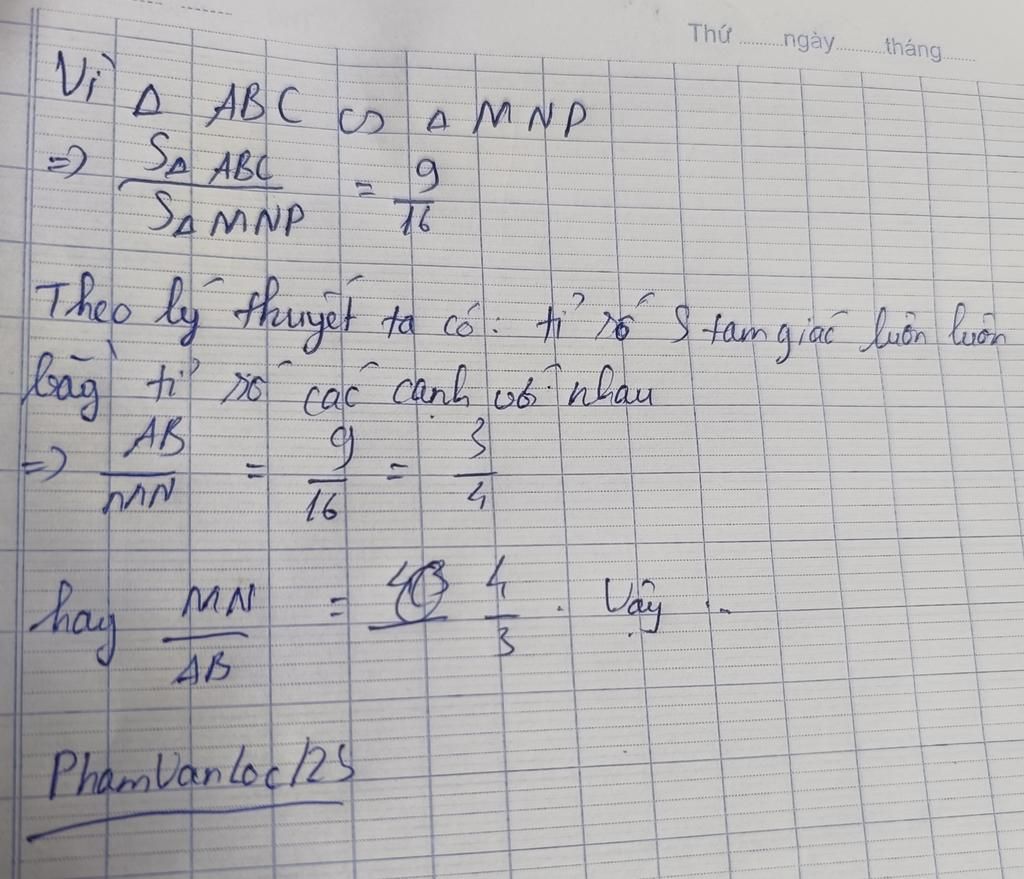 Thứ ......... ngày ......... tháng .......
Vì Δ ABC ∽ Δ MNP
=> SΔ ABC / SΔ MNP = 9/16
Theo lý thuyết ta có: tỉ số S tam giác luôn luôn
bằg tỉ số các cạnh với nhau
=> AB/MN = 9/16 = 3/4
hay MN/AB = 4/3 . Vậy ..
PhamVanLoc125